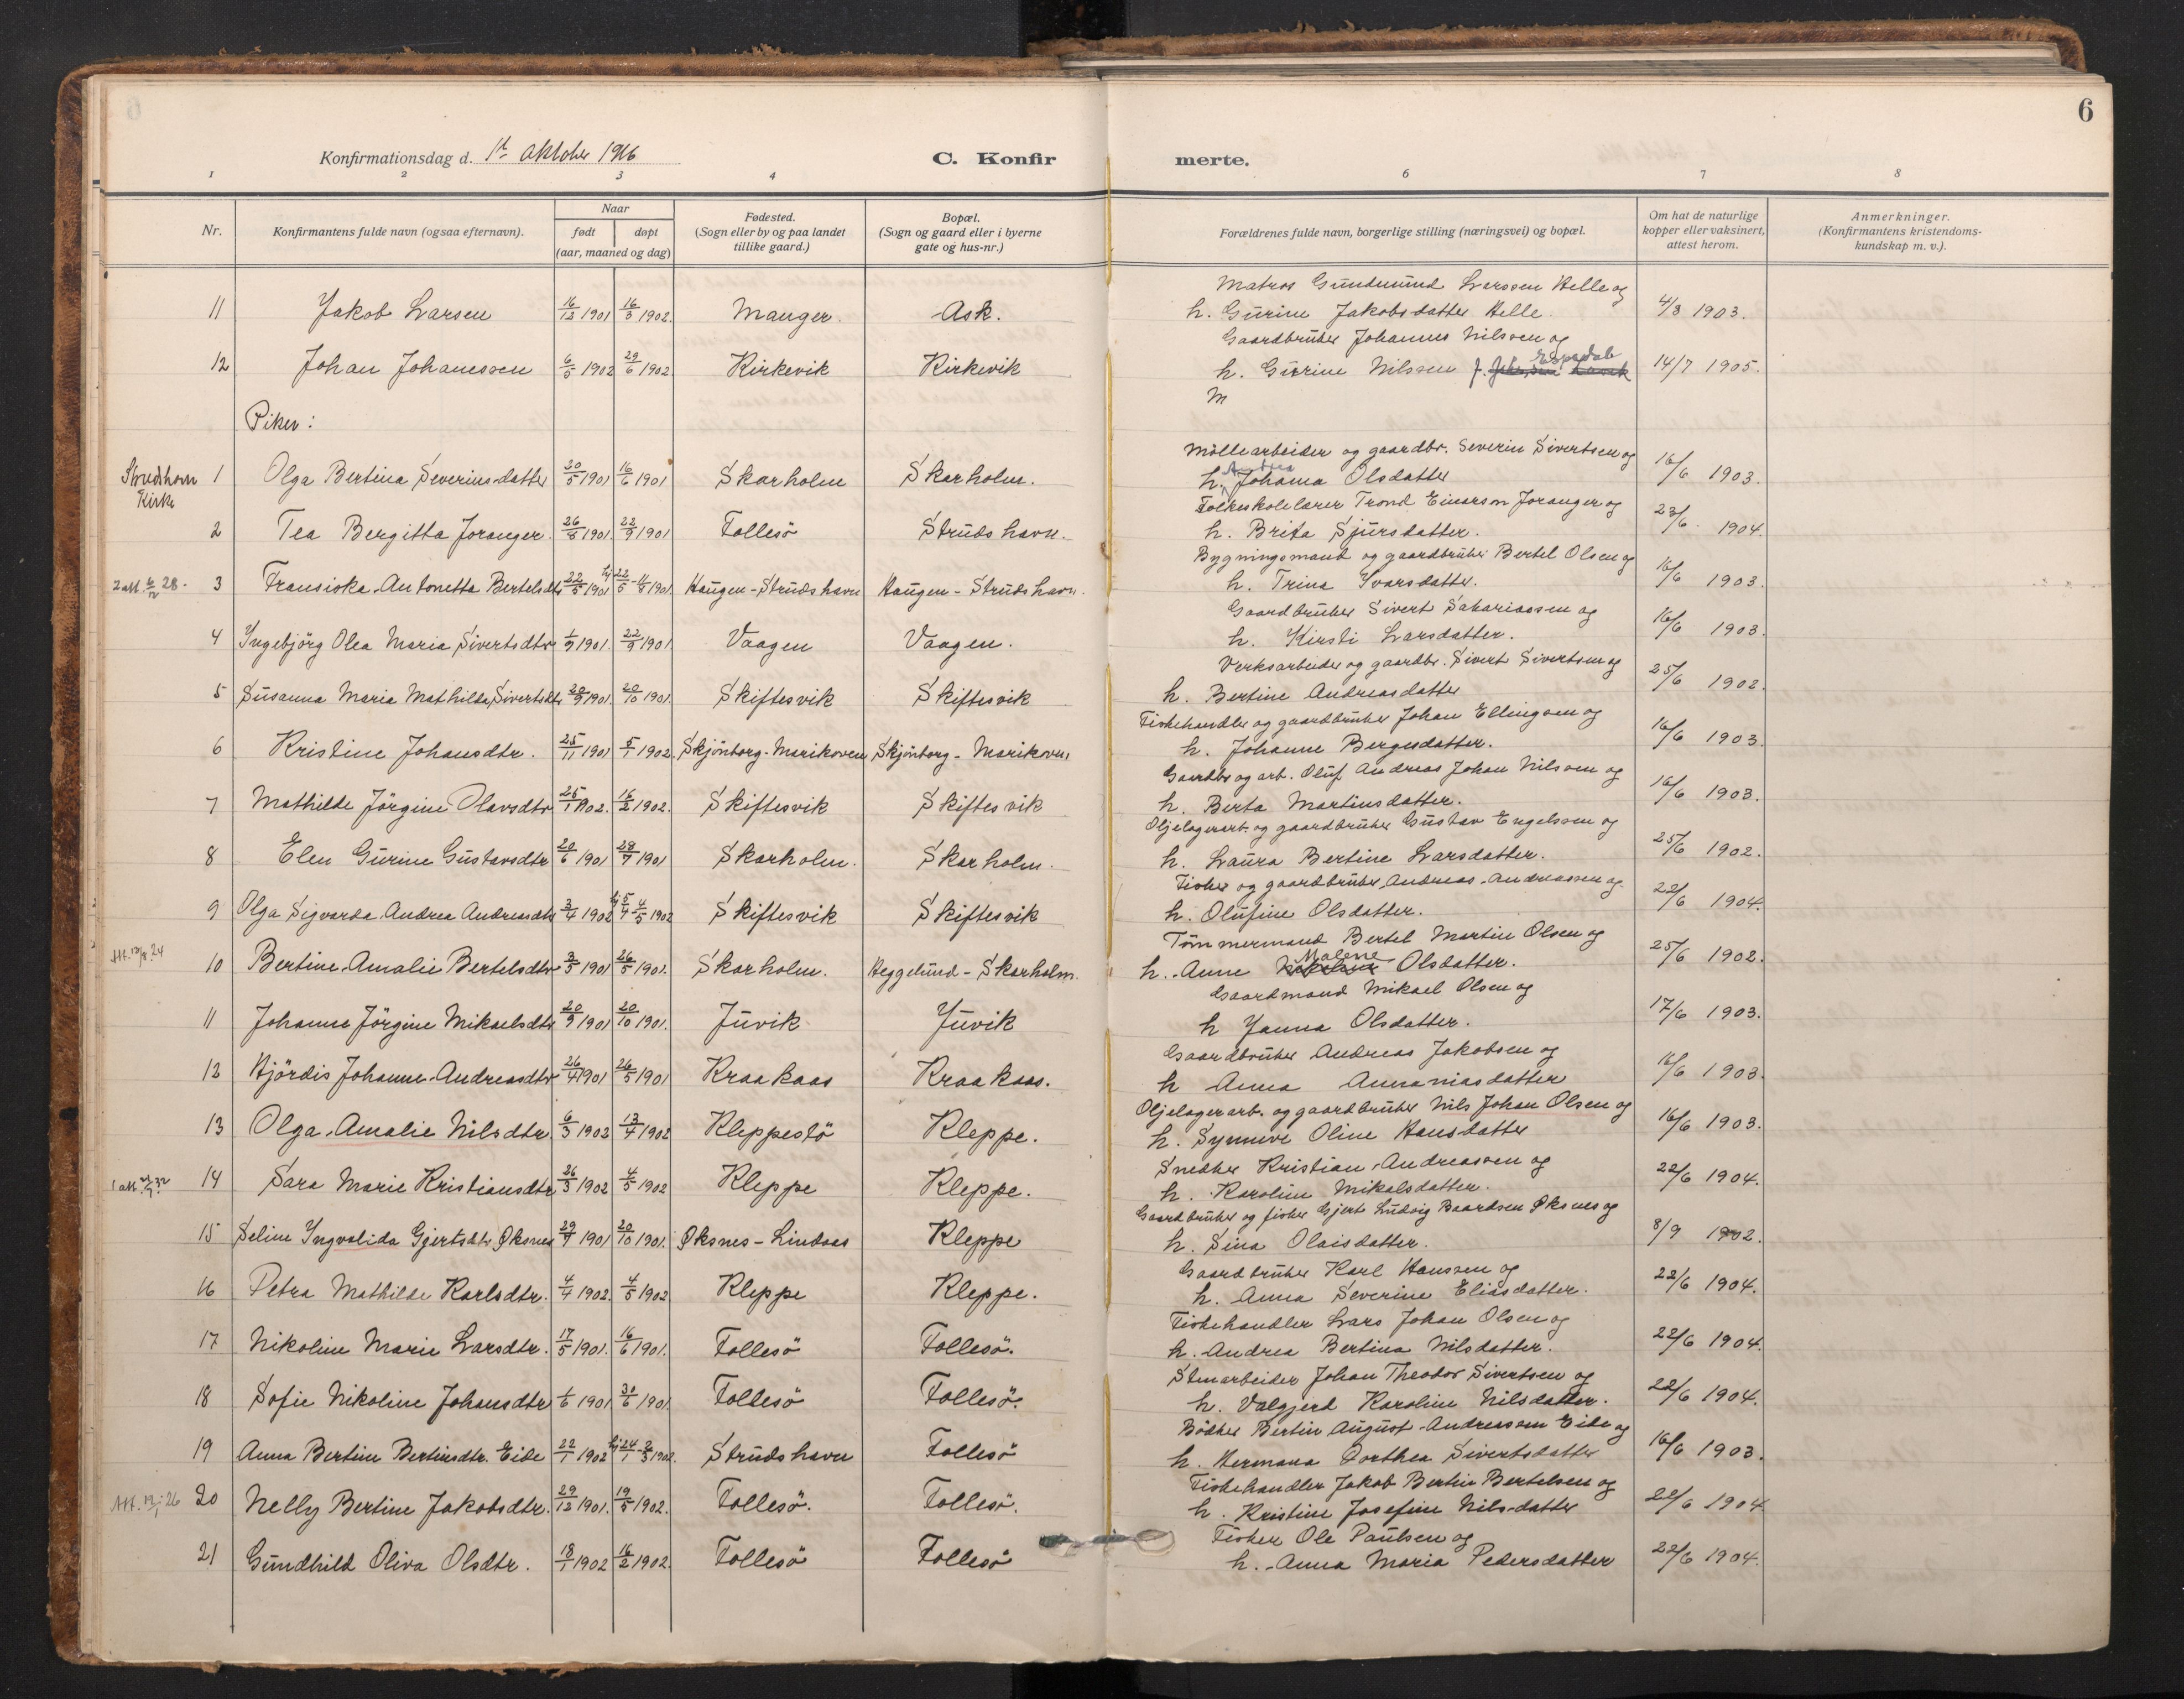 6
Konfirmationsdag d. 1ste oktober 1916
C. Konfirmerte.
1 2 3 4 6 7 8
Nr. Konfirmantens fulde navn (ogsaa efternavn). Naar født døpt (aar, maaned og dag) Fødested. (Sogn eller by og paa landet tillike gaard.) Bopæl. (Sogn og gaard eller i byerne gate og hus-nr.) Forældrenes fulde navn, borgerlige stilling (næringsvei) og bopæl. Om hat de naturlige kopper eller vaksinert, attest herom. Anmerkninger. (Konfirmantens kristendomskundskap m. v.).
Matros Gundmund Larssen Helle og
11 Jakob Larsen 16/12 1901 16/3 1902. Manger. Ask. h. Gurine Jakobsdatter Helle. 4/8 1903.
Gaardbruker Johannes Nilssen og
12 Johan Johanessen 6/5 1902 29/6 1902 Kirkevik Kirkevik h. Gurine Nilssen f. Espedal 14/7 1905.
M
Piker:
Möllearbeider og gaardbr. Severin Sivertsen og
Strudshavn Kirke 1 Olga Bertina Severinsdatter 20/5 1901 16/6 1901 Skarholm Skarholm. h. Andrea Johana Olsdatter 16/6 1903.
Folkeskolelærer Trond Einarson Joranger og
2 Tea Bergitta Joranger. 26/8 1901. 22/9 1901 Follesö Strudshavn. h. Brita Sjursdatter. 23/6. 1904.
Bygningsmand og gaardbruker Bertel Olsen og
2 att. 6/12 28. 3 Fransiska Antonetta Bertelsdtr 22/5 1901 hj 22/5 - 4/8 1901. Haugen-Strudshavn Haugen-Strudshavn. h. Trina Ivarsdatter. 16/6 1903.
Gaardbruker Sivert Sakariassen og
4 Ingebjörg Olea Maria Sivertsdtr 1/9 1901. 22/9 1901. Vaagen Vaagen. h. Kirsti Larsdatter. 16/6 1903.
Verksarbeider og gaardbr. Sivert Sivertsen og
5 Susanna Maria Mathilda Sivertsdtr 20/9 1901. 20/10 1901. Skiftesvik Skiftesvik h. Bertine Andreasdatter 25/6 1902.
Fiskehandler og gaardbruker Johan Ellingsen og
6 Kristine Johansdtr. 25/11 1901 5/1 1902. Skjönborg-Marikoven Skjönborg-Marikoven h. Johanne Bergesdatter. 16/6 1903.
Gaardbr og arb. Oluf Andreas Johan Nilssen og
7 Mathilde Jörgine Olavsdtr 25/1 1902. 16/2 1902. Skiftesvik Skiftesvik h. Berta Martinsdatter. 16/6 1903.
Oljelagerarb. og gaardbruker Gustav Engelssen og
8 Elen Gurine Gustavsdtr 20/6 1901 28/7 1901 Skarholm. Skarholm. h. Laura Bertine Larsdatter. 25/6 1902.
Fisker og gaardbruker Andreas Andreassen og
9 Olga Sigvarda Andrea Andreasdtr 3/4 1902 hj 5/4 - 4/5 1902 Skiftesvik Skiftesvik h. Olufine Olsdatter. 22/6 1904.
Tömmermand Bertel Martin Olsen og
Att. 13/8.24 10 Bertine Amalie Bertelsdtr 3/5 1901 26/5 1901. Skarholm. Heggelund-Skarholm. h. Anne Malene Olsdatter. 25/6 1902.
Gaardmand Mikael Olsen og
11 Johanne Jörgine Mikaelsdtr 20/9 1901 20/10 1901. Juvik Juvik h Janna Olsdatter. 17/6 1903.
Gaardbruker Andreas Jakobsen og
12 Hjördis Johanne Andreasdtr 26/4 1901 26/5 1901 Kraakaas Kraakaas. h Anna Annaniasdatter 16/6 1903.
Oljelagerarb. og gaardbruker Nils Johan Olsen og
13 Olga Amalie Nilsdtr 6/3 1902 13/4 1902 Kleppestö Kleppe. h. Synneve Oline Hansdatter 16/6 1903.
Snedker Kristian Andreassen og
14 Sara Marie Kristiansdtr 26/3 1902 4/5 1902 Kleppe Kleppe. h. Karoline Mikalsdatter. 22/6 1904.
Gaardbruker og fisker Gjert Ludvig Baardsen Øksnes og
15 Seline Ingvalida Gjertsdtr Øksnes 29/9 1901 20/10 1901. Øksnes-Lindaas Kleppe h. Sina Olaisdatter. 8/9 1902.
Gaardbruker Karl Hanssen og
16 Petra Mathilde Karlsdtr. 4/4 1902. 4/5 1902 Kleppe Kleppe. h. Anna Severine Eliasdatter. 22/6 1904.
Fiskehandler Lars Johan Olsen og
17 Nikoline Marie Larsdtr. 17/5 1901. 16/6 1901. Follesö Follesö. h. Andrea Bertina Nilsdatter. 22/6 1904.
Stenarbeider Johan Theodor Sivertsen og
18 Sofie Nikoline Johansdtr 1/6 1901 30/6 1901. Follesö Follesö. h. Valgjerd Karoline Nilsdatter. 22/6 1904.
Bödker Bertin August Andreassen Eide og
19 Anna Bertine Bertinsdtr. Eide 22/1 1902 hj 24/1 - 2/3 1902. Strudshavn Follesö h. Hermana Dorthea Sivertsdatter 16/6 1903.
Fiskehandler Jakob Bertin Bertelsen og
Att. 19/1 - 26 20 Nelly Bertine Jakobsdtr. 29/12 1901. 19/5 1902. Follesö. Follesö. h. Kristine Josefine Nilsdatter 22/6 1904
Fisker Ole Paulsen og
21 Gundhild Oliva Olsdtr. 18/1 1902 16/2 1902. Follesö Follesö h. Anna Maria Pedersdatter 22/6 1904.